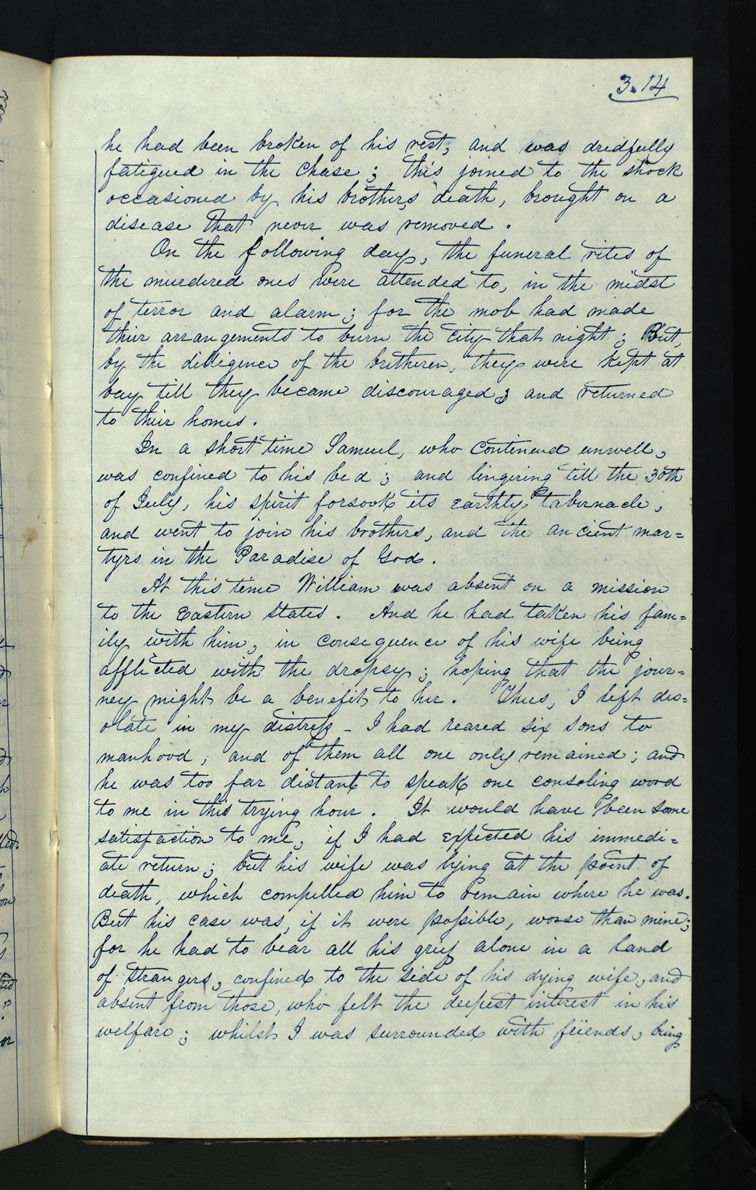 3.14
he had been broken of his rest, and was dredfully
fatigued in the chase; this joined to the shock
occasioned by his brothers death, brought on a
disease that never was removed.
On the following day, the funeral rites of
the murdered ones were attended to, in the midst
of terror and alarm; for the mob had made
their arrangements to burn the city that night; But,
by the dilligence of the bretheren, they were kept at
bay till they became discouraged; and returned
to their homes.
In a short time Samuel, who contenued unwell,
was confined to his bed; and lingiring till the 30th
of July, his spirit forsook its earthly tabernacle,
and went to join his brothers, and the ancient mar=
tyrs in the Paradise of God.
At this time William was absent on a mission
to the Eastern States. And he had taken his fam=
ily with him, in consequence of his wife being
afflicted with the dropsy; hoping that the jour=
ney might be a benefit to her. Thus, I left des=
olate in my distress - I had reared six sons to
manhood, and of them all one only remained; and
he was too far distant to speak one consoling word
to me in this trying hour. It would have been some
satisfaction to me, if I had expected his immedi=
ate return; but his wife was lying at the point of
death, which compelled him to remain where he was.
But his case was, if it were possible, worse than mine;
for he had to bear all his grief alone in a land
of strangers, confined to the side of his dying wife, and
absent from those, who felt the deepest interest in his
welfare; whilst I was surrounded with friends, being